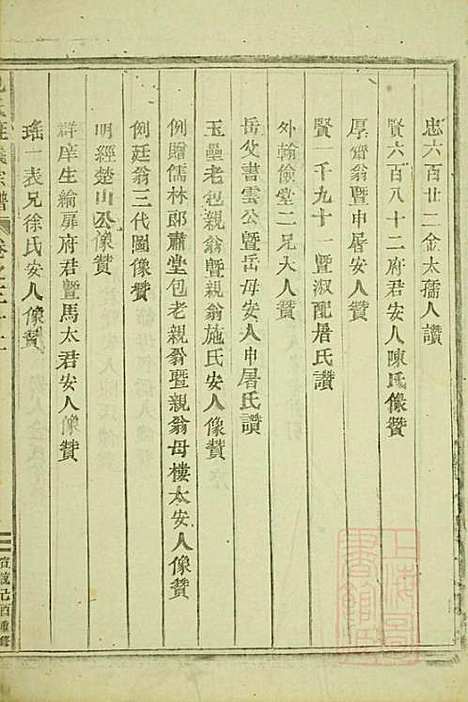 忠六百廿二金太孺人讚
賢六百八十二府君安人陳氏像贊
厚齋翁暨申屠安人贊
賢一千九十一暨淑配屠氏讚
外翰儉堂二兄大人贊
岳父書雲公暨岳母安人申屠氏讚
玉疊老包親翁暨親翁施氏安人像贊
例贈儒林郎肅堂包老親翁暨親翁母樓太安人像贊
例廷翁三代圖像贊
明經楚山公像贊
群庠生綸扉府君暨馬太君安人像贊
瑤一表兄徐氏安人像贊
宗譜 卷之二十二
宣統己酉重修
上海圖書館藏